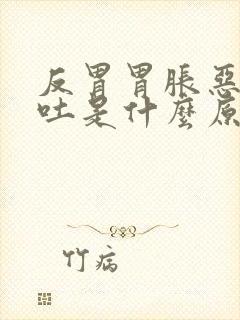 反胃胃脹惡
吐是什麼原
竹病